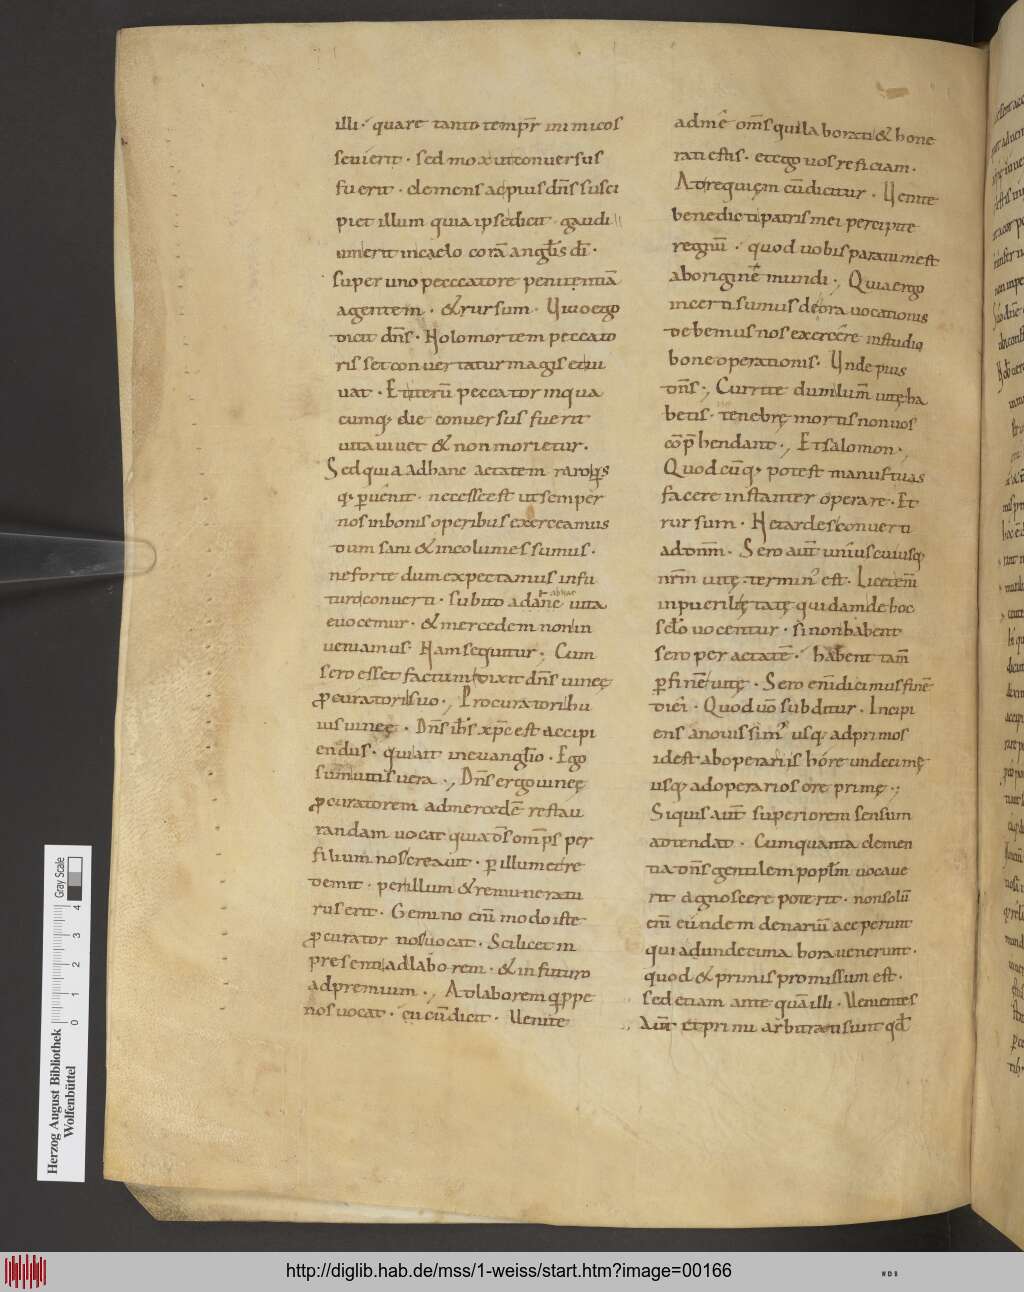 illi · quare tanto tempr̄ inimicos
seuierit · sed mox ut conuersus
fuerit · clemens ac pius dn̄s susci
piet illum quia ipse dicit · gaudi
um erit in caelo corā angl̄is dī ·
super uno pecccatore penitentiā
agentem · & rursum · Uiuo ego
dicit dn̄s · Nolo mortem peccato
ris set conuertatur magis et ui
uat · Et iterū peccator in qua
cumq; die conuersus fuerit
uita uiuet & non morietur ·
Sed quia ad hanc aetatem raro
q; peruenit · necesse est ut semper
nos in bonis operibus exerceamus
dum sani & incolumes sumus ·
ne forte dum expectamus in fu
turo conuerti · subito ad
ab hac
uita
euocemur · & mercedem non in
ueniamus · Nam sequitur · Cum
sero esset factum dixit dn̄s uineę
procuratori suo · Procurator ihu
ius uineę · Dn̄s ihs xpc est accipi
endus · qui ait in euanglio · Ego
sum uitis uera · Dn̄s ergo uineę
procuratorem ad mercedē restau
randam uocat quia
filium nos creauit · per illum et re
demit · per illum & remuneratu
rus erit · Gemino enī modo iste
procurator nos uocat · Scilicet in
presenti ad laborem · & in futuro
ad premium · Ad laborem
nos uocat · cū dicit · Uenite
ad me om̄s qui laborati & hone
rati estis · et ego uos reficiam ·
At requięm cū dicitur · Uenite
benedicti patris mei percipite
regnū · quod uobis paratum est
ab origine mundi · Quia ergo
incerti sumus de ora uocationis
debemus nos exercere in studio
bone operationis · Unde
dn̄s · Currite dum lum̄ uitę ha
betis · tenebrę mortis non uos
cōp̄hendant · Et salomon ·
Quodcūq; potest manus tuas
facere instanter operare · Et
rursum · Ne tardes conuerti
ad dnm̄ · Sero aut̄ uniuscuiusq;
nrm̄ uitę terminus est · Licet enī
in puerilitate quidam de hoc
sclō uocentur · si non habent
sero per aetatē · habent tam̄
per finē uitę · Sero enī dicimus finē
diei · Quod uō subditur · Incipi
ens a nouissimis usq; ad primos
id est ab operariis hore undecimę
usq; ad operarios ore primę ·
Siquis aut̄ superiorem sensum
adtendat · Cum quanta clemen
tia dn̄s gentilem popl̄m uocaue
rit agnoscere poterit · non solū
enī eundem denariū acceperunt
qui ad undecima hora uenerunt ·
quod & primis promissum est ·
sed etiam ante quā illi · Uenientes
Aut̄ et primi arbitrati sunt qd̄
Herzog August Bibliothek
Wolfenbüttel
0 1 2 3 4
Gray Scale
http://diglib.hab.de/mss/1-weiss/start.htm?image=00166